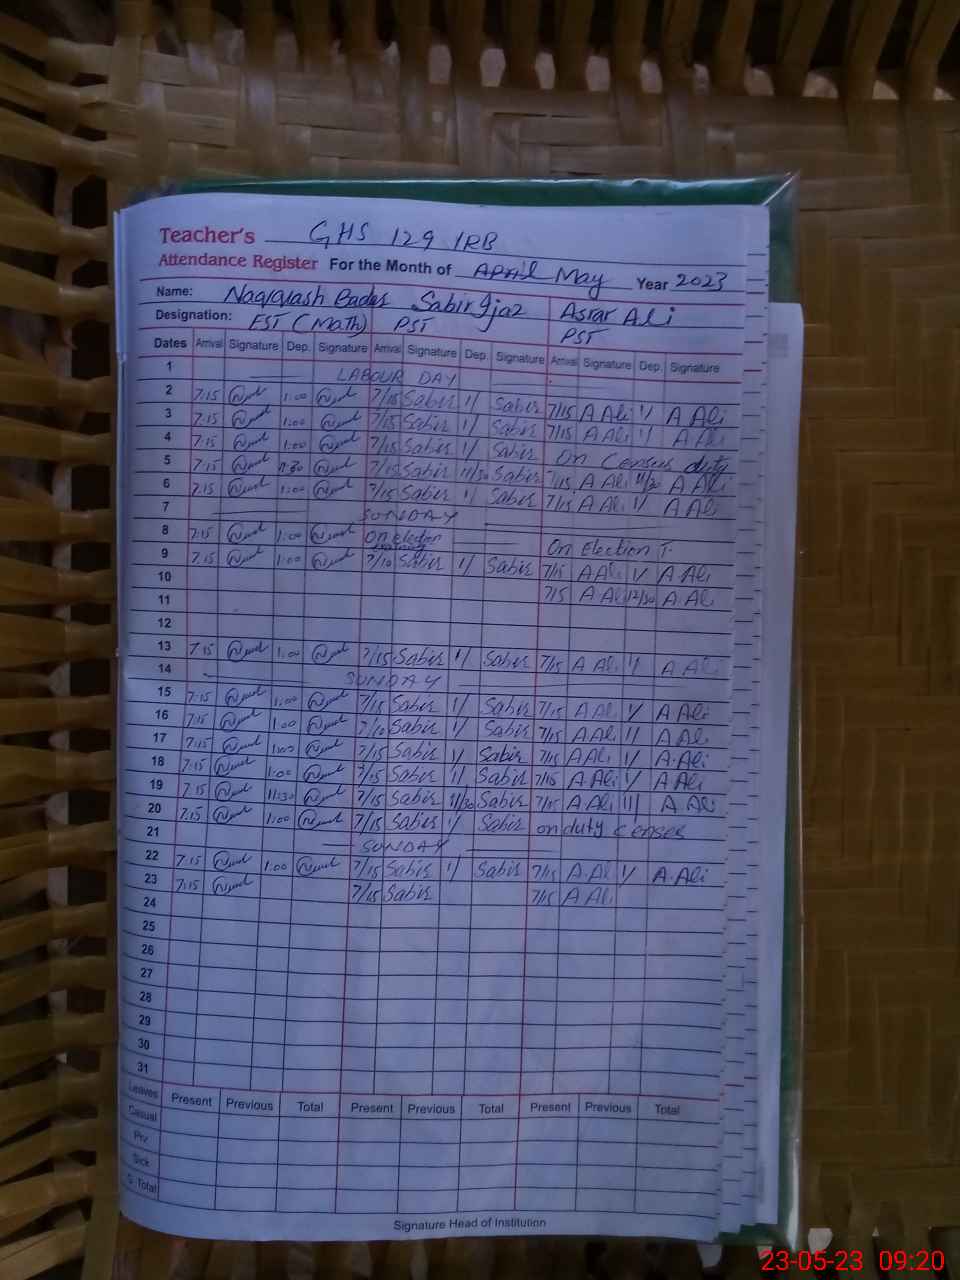 Teacher's GHS 129 1RB
Attendance Register For the Month of April May Year 2023
Name: Naqqash Badar Sabir Ijaz Asrar Ali
Designation: EST (Math) PST PST
Dates Arrival Signature Dep. Signature Arrival Signature Dep. Signature Arrival Signature Dep. Signature
1 LABOUR DAY
2 7:15 1:00 7/15 Sabir 1/ Sabir 7/15 A Ali 1/ A Ali
3 7:15 1:00 7/15 Sabir 1/ Sabir 7/15 A Ali 1/ A Ali
4 7:15 1:00 7/15 Sabir 1/ Sabir On Census duty
5 7:15 11:30 7/15 Sabir 11/30 Sabir 7/15 A Ali 11/30 A Ali
6 7:15 1:00 7/15 Sabir 1/ Sabir 7/15 A Ali 1/ A Ali
7 SUNDAY
8 7:15 1:00 On election On Election T.
9 7:15 1:00 7/10 Sabir 1/ Sabir 7/15 A Ali 1/ A.Ali
10 7/15 A.Ali 12/30 A.Ali
11
12
13 7:15 1:00 7/15 Sabir 1/ Sabir 7/15 A Ali 1/ A Ali
14 SUNDAY
15 7:15 1:00 7/15 Sabir 1/ Sabir 7/15 A Ali 1/ A Ali
16 7:15 1:00 7/10 Sabir 1/ Sabir 7/15 A Ali 1/ A Ali
17 7:15 1:00 7/15 Sabir 1/ Sabir 7/15 A Ali 1/ A.Ali
18 7:15 1:00 7/15 Sabir 1/ Sabir 7/15 A Ali 1/ A Ali
19 7:15 11:30 7/15 Sabir 11/30 Sabir 7/15 A Ali 11/ A.Ali
20 7:15 1:00 7/15 Sabir 1/ Sabir on duty censes
21 SUNDAY
22 7:15 1:00 7/15 Sabir 1/ Sabir 7/15 A.Ali 1/ A.Ali
23 7:15 7/15 Sabir 7/15 A Ali
24
25
26
27
28
29
30
31
Leaves Present Previous Total Present Previous Total Present Previous Total
Casual
Prv
Sick
G. Total
Signature Head of Institution
23-05-23 09:20